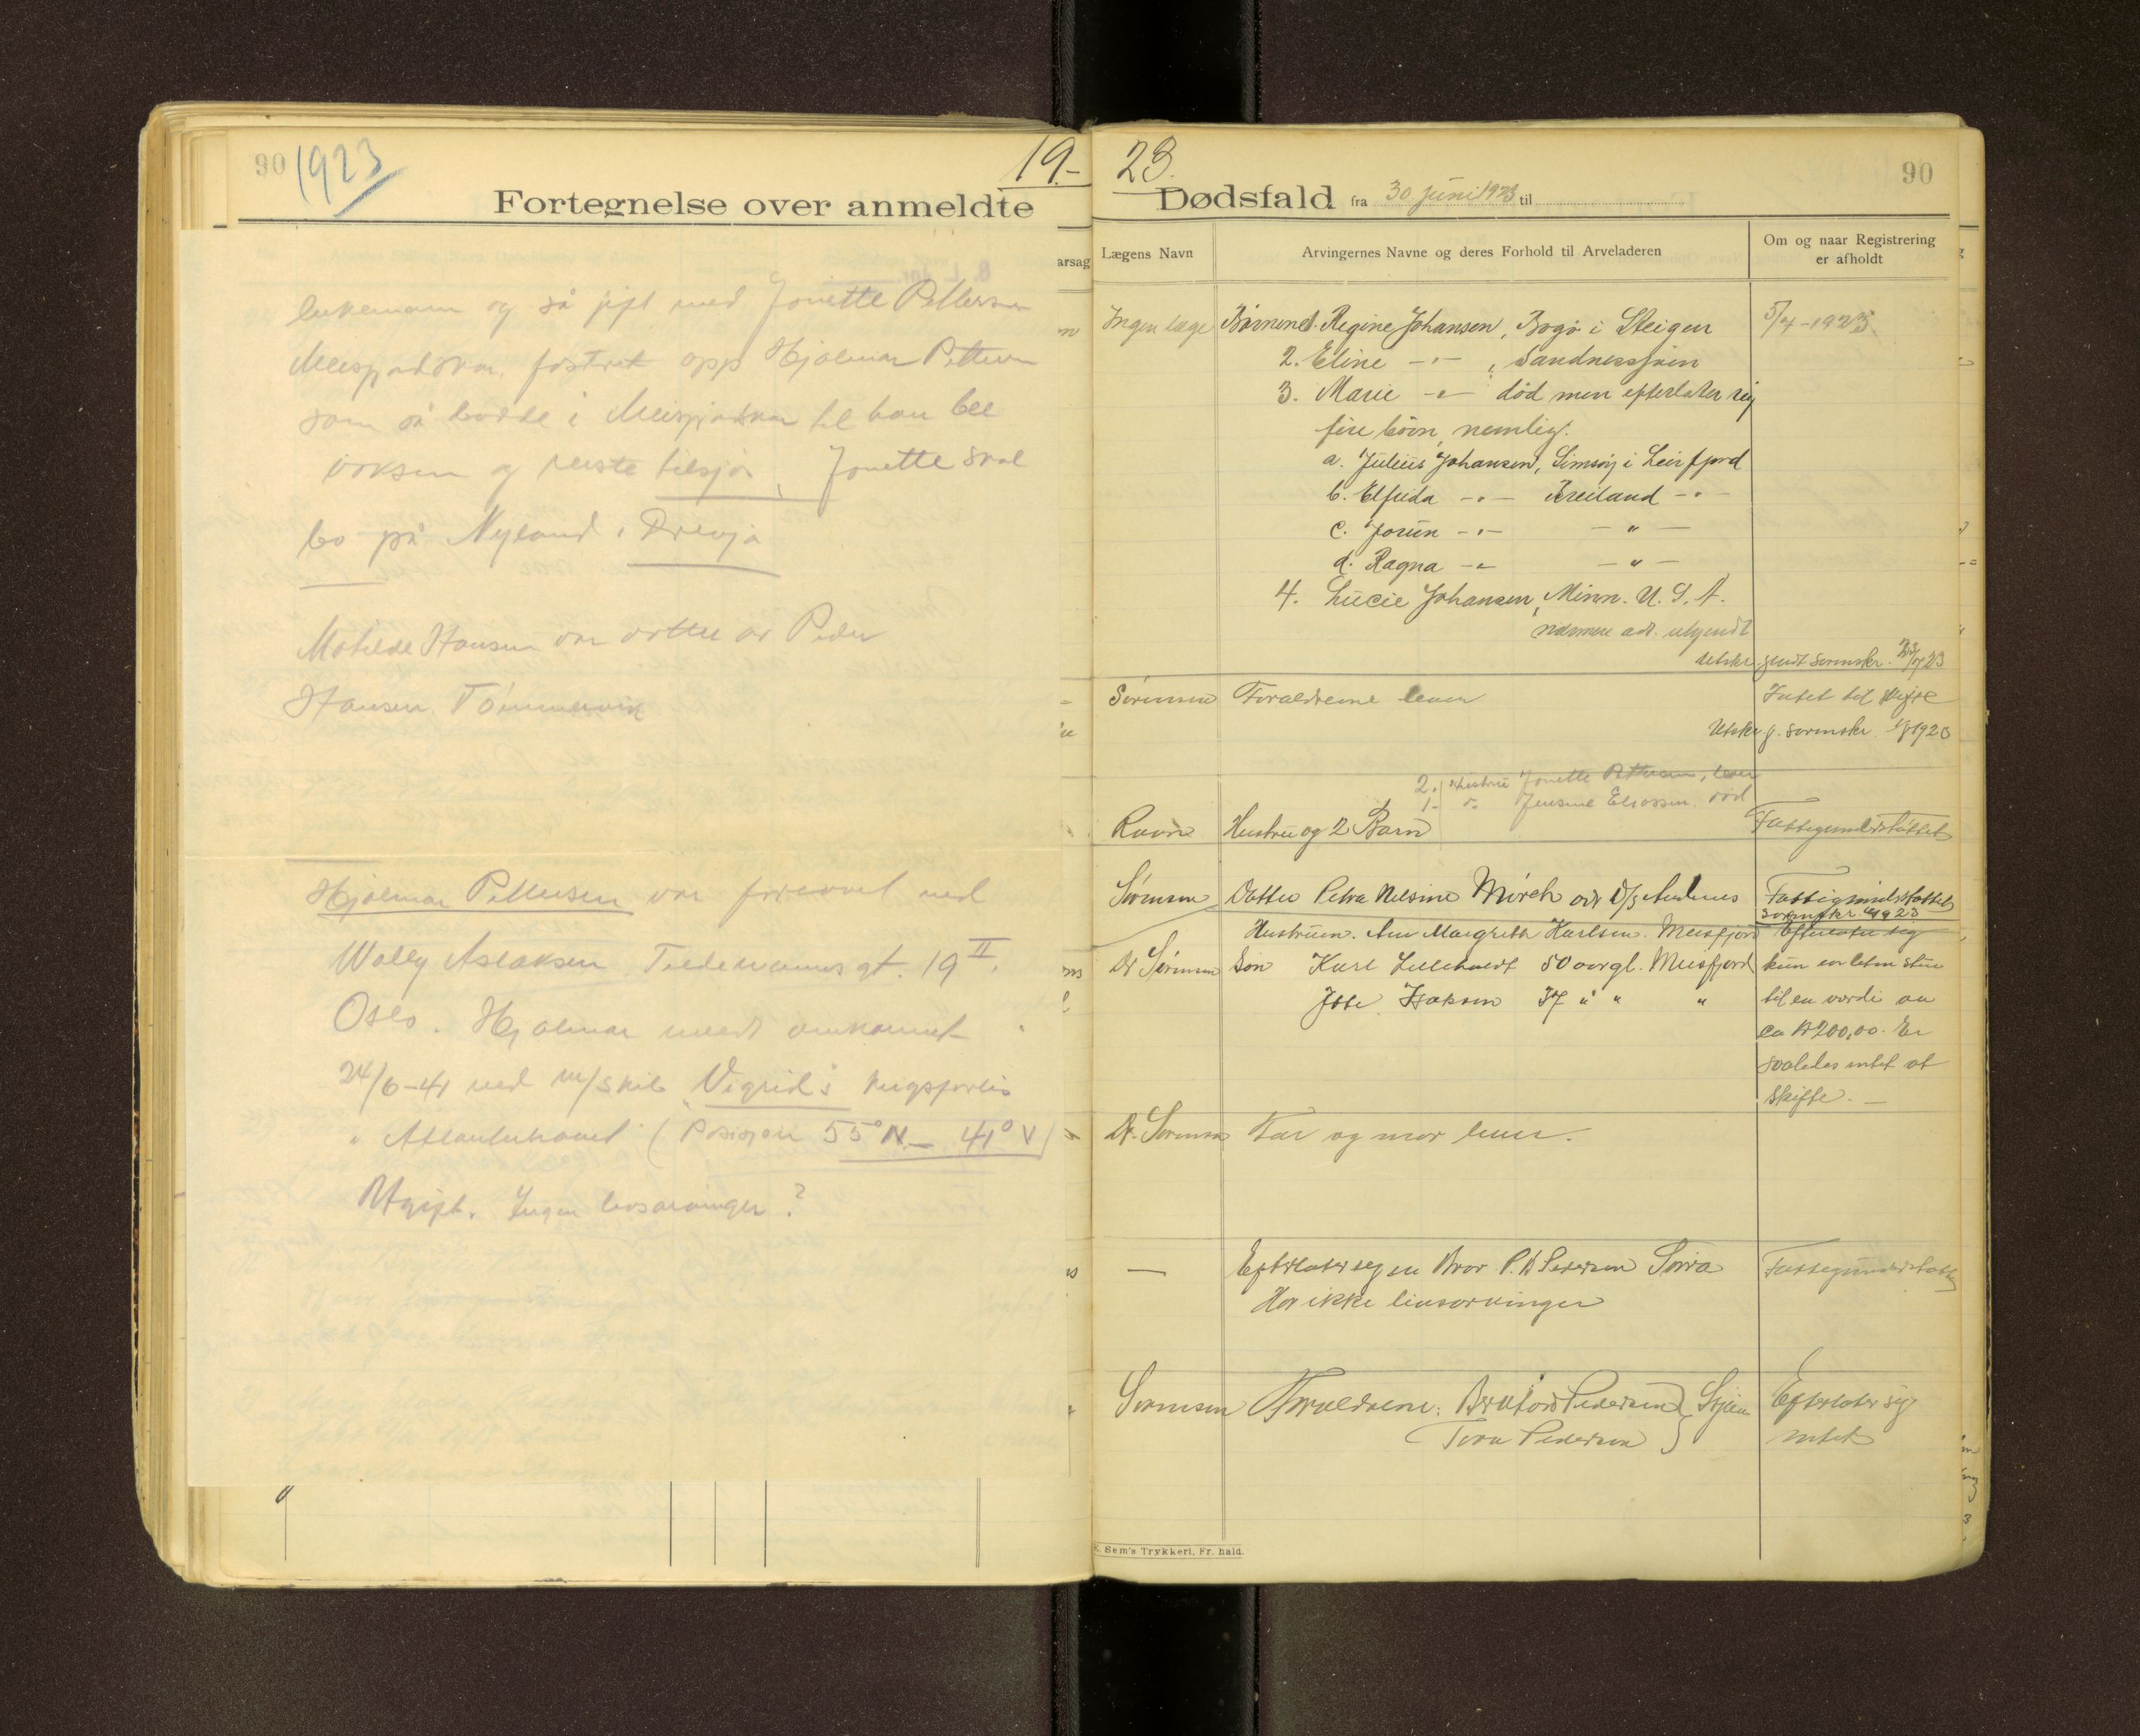 90 1923
19.-
Fortegnelse over anmeldte
enkemann og så gift med Jonette Pettersen
Meisfjordskar. fostret opp Hjalmar Pettersen
som så bodde i Meisfjordskar til han ble
voksen og reiste tilsjøs, Jonette skal
bo på Nyland i Drevja
Matilde Hansen var datter av Peder
Hansen Tømmervik
Hjalmar Pettersen var forlovet med
Wally Aslaksen Tidemannsgt. 19 II.
Oslo. Hjalmar meldt omkommet
24/6-41 ved m/skib "Vigrid's krigsforlis
i Atlanterhavet (Posisjon 55° N. – 41° V)
Ugift. Ingen livsarvinger?
23.
90
Dødsfald fra 30 juni 1923 til
arsag
Lægens Navn
Arvingernes Navne og deres Forhold til Arveladeren
Om og naar Registrering
er afholdt
Ingen læge Børnene 1. Regine Johansen, Bogø i Steigen 5/7-1923.
2. Eline -"- , Sandnessjøen
3. Marie -"- død men efterlater sig
fire børn, nemlig:
a. Julius Johansen, Simsøy i Leirfjord
b. Elfrida -"- Breiland -"-
c. Jorun -"- -"-
d. Ragna -"- -"-
4. Lucie Johansen, Minn. U. S. A.
nærmere adr. ukjendt
Utskr. sendt sorenskr. 23/7 23
Sørensen Forældrene lever Intet til skifte
Utskr. s. sorenskr. 1/8 1923
2. Hustru Jonette Pettersen, lever
1. " Jensine Eliassen død
Ravn Hustru og 2 Barn Fattigunderstøttet
Sørensen Datter Petra Nelsine Mörch adr D/s Fattigunderstøttet
sorenskr. 1923
Hustruen. Ane Margrethe Karlsen. Meisfjord Efterlater sig
Dr Sørensen Søn Karl Lillehardt 50 aar gl. Meisfjord kun en liten stue
Isak Isaksen 37 " " " til en værdi av
ca kr 200,00. Er
saaledes intet at
skifte. –
Dr. Sørensen Far og mor lever.
— Efterlater sig en Bror P. A Pedersen Sørra Fattigunderstøttet
Har ikke livsarvinger
Sørensen Forældrene: Pedersen } Efterlater sig
Tora Pedersen intet
E. Sem's Trykkeri, Fr. hald.